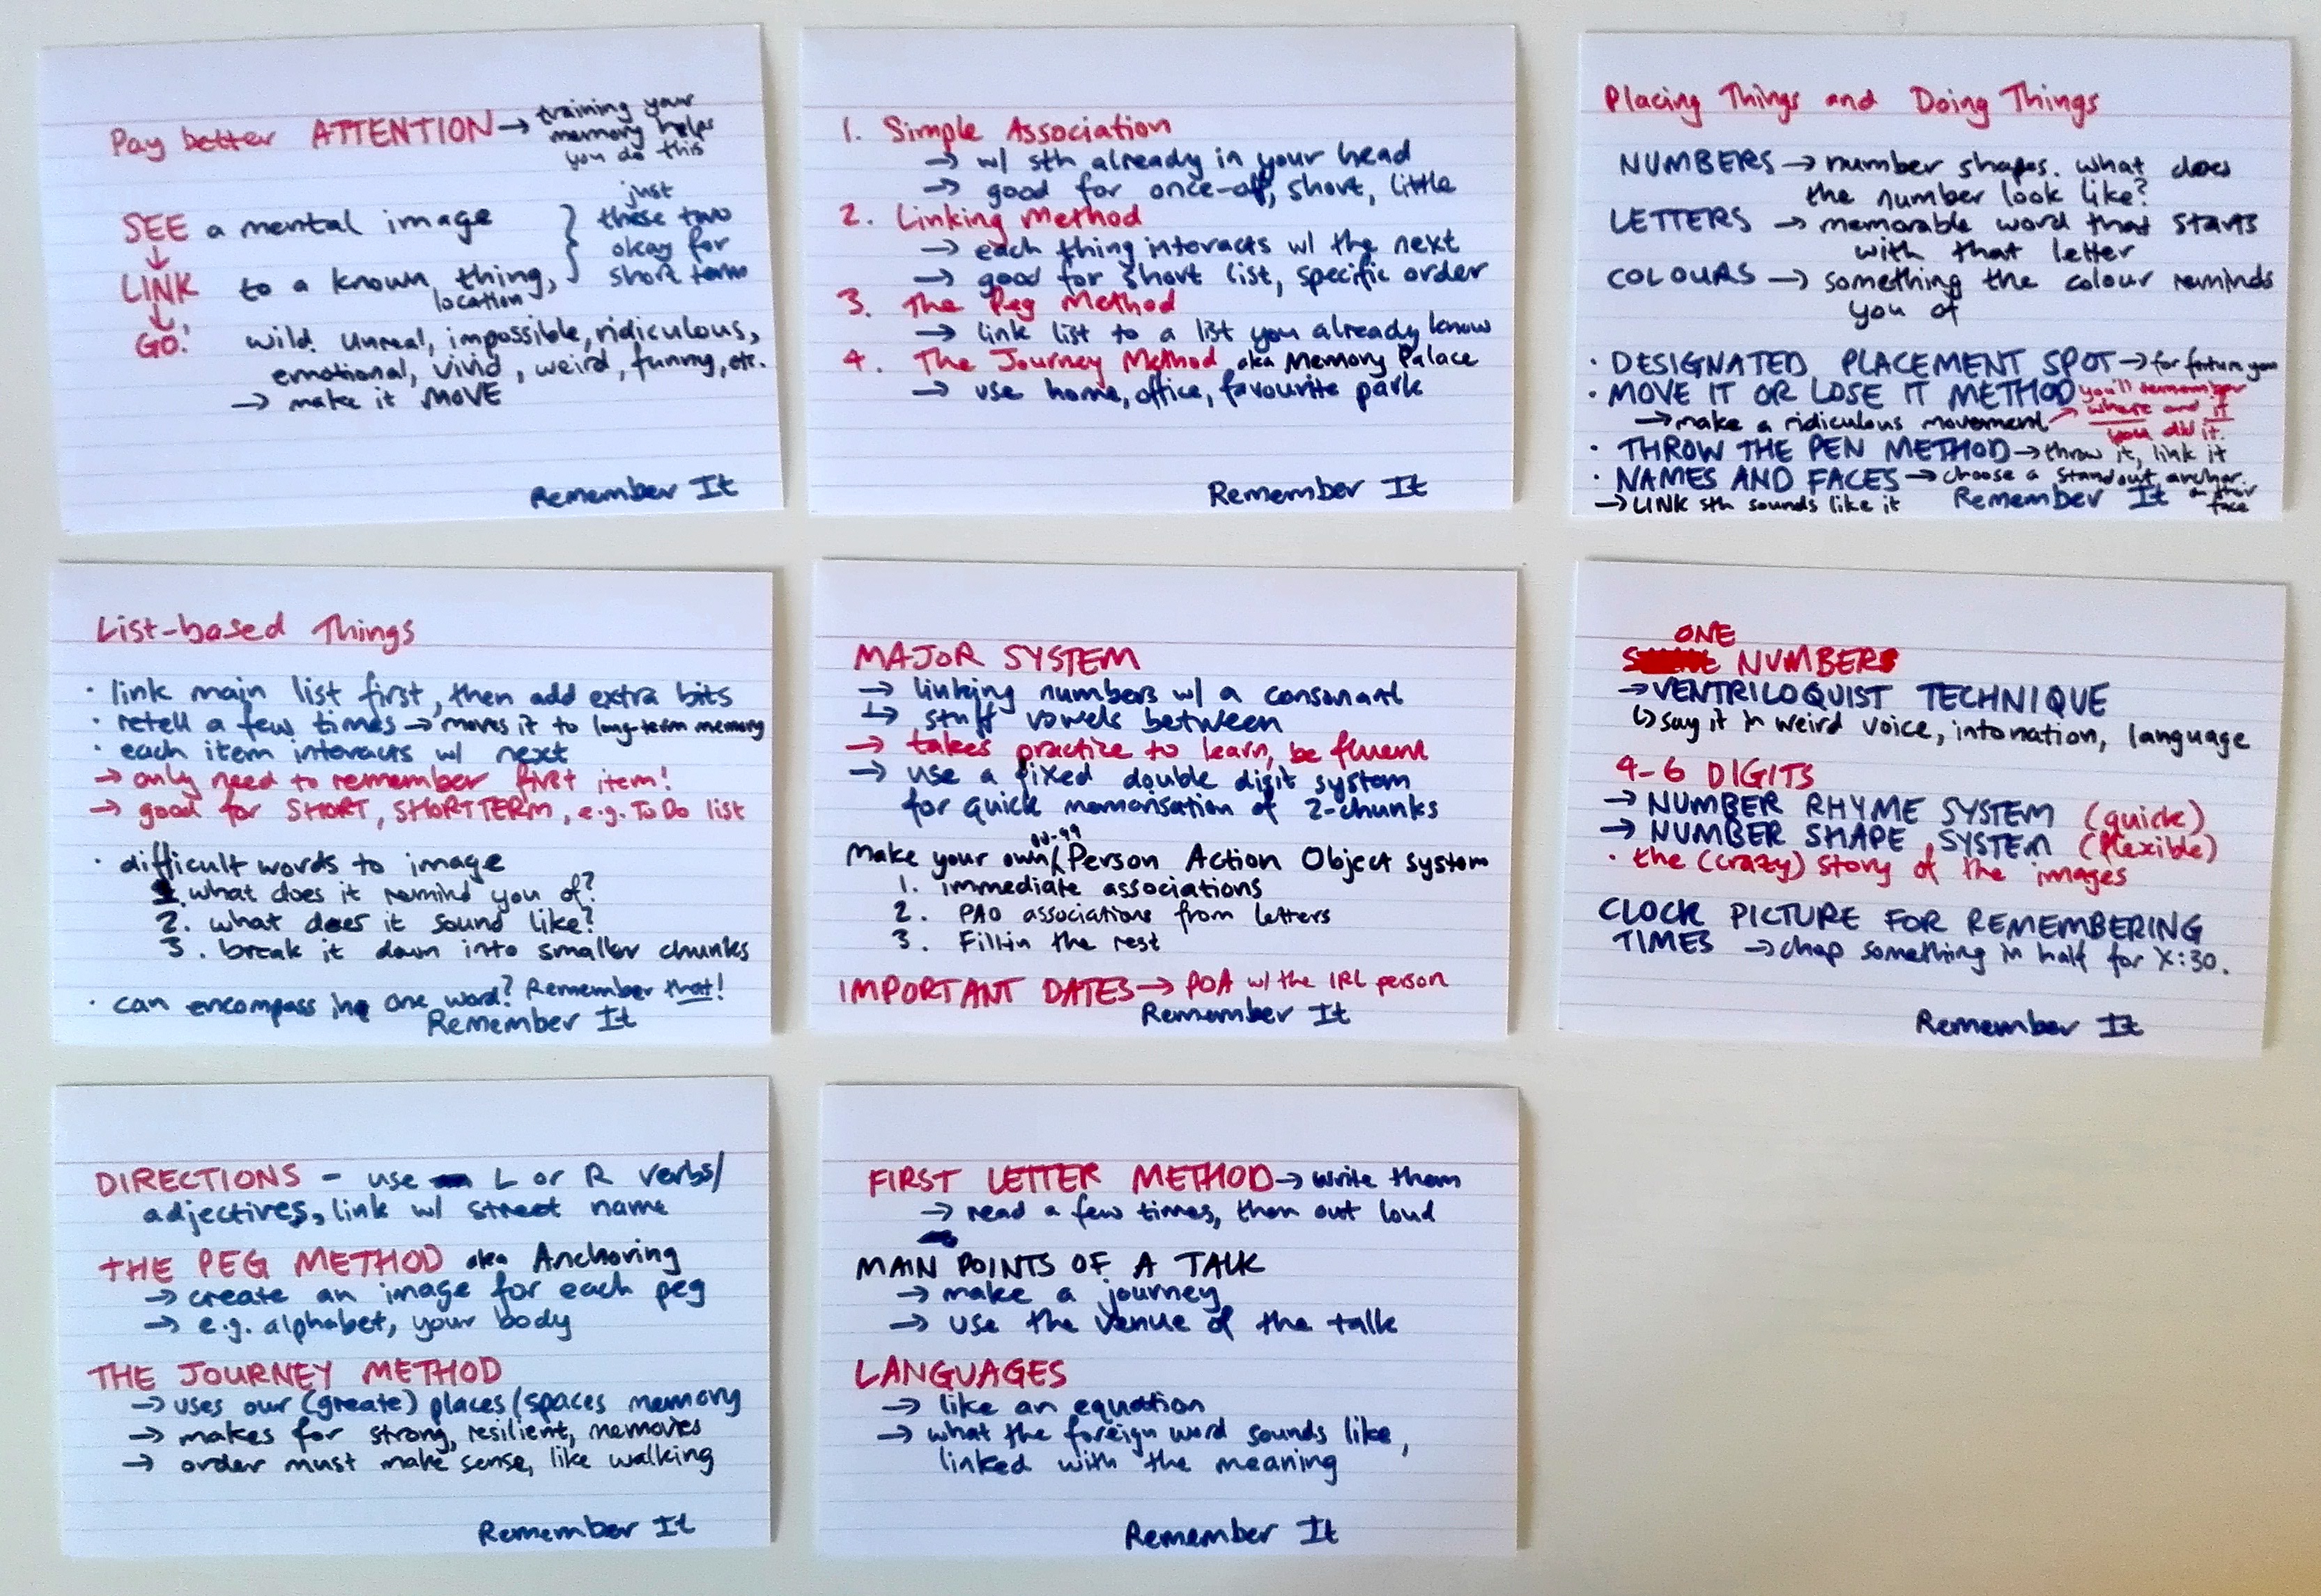 Pay better ATTENTION → training your
memory helps
you do this
SEE a mental image } just
these two
okay for
short term
↓
LINK to a known thing,
location
↓
GO! wild. Unreal, impossible, ridiculous,
emotional, vivid, weird, funny, etc.
→ make it MOVE
Remember It
1. Simple Association
→ w/ sth already in your head
→ good for once-off, short, little
2. Linking Method
→ each thing interacts w/ the next
→ good for short list, specific order
3. The Peg Method
→ link list to a list you already know
4. The Journey Method aka Memory Palace
→ use home, office, favourite park
Remember It
Placing Things and Doing Things
NUMBERS → number shapes. what does
the number look like?
LETTERS → memorable word that starts
with that letter
COLOURS → something the colour reminds
you of
· DESIGNATED PLACEMENT SPOT → for future you
· MOVE IT OR LOSE IT METHOD
→ make a ridiculous movement → you'll remember
where and if
you did it.
· THROW THE PEN METHOD → throw it, link it
· NAMES AND FACES → choose a standout anchor
on their
face
→ LINK sth sounds like it
Remember It
List-based Things
· link main list first, then add extra bits
· retell a few times → moves it to long-term memory
· each item interacts w/ next
→ only need to remember first item!
→ good for SHORT, SHORT TERM, e.g. To Do list
· difficult words to image
1. what does it remind you of?
2. what does it sound like?
3. break it down into smaller chunks
· can encompass in one word? Remember that!
Remember It
MAJOR SYSTEM
→ linking numbers w/ a consonant
↳ stuff vowels between
→ takes practice to learn, be fluent
→ use a fixed double digit system
for quick memorisation of 2-chunks
Make your own 00-99 Person Action Object system
1. immediate associations
2. PAO associations from letters
3. Fill in the rest
IMPORTANT DATES → POA w/ the IRL person
Remember It
ONE NUMBER
→ VENTRILOQUIST TECHNIQUE
↳ say it in weird voice, intonation, language
4-6 DIGITS
→ NUMBER RHYME SYSTEM (quick)
→ NUMBER SHAPE SYSTEM (flexible)
· the (crazy) story of the images
CLOCK PICTURE FOR REMEMBERING
TIMES → chop something in half for X:30.
Remember It
DIRECTIONS - use L or R verbs/
adjectives, link w/ street name
THE PEG METHOD aka Anchoring
→ create an image for each peg
→ e.g. alphabet, your body
THE JOURNEY METHOD
→ uses our (greate) places/spaces memory
→ makes for strong, resilient, memories
→ order must make sense, like walking
Remember It
FIRST LETTER METHOD → write them
→ read a few times, then out loud
MAIN POINTS OF A TALK
→ make a journey
→ use the venue of the talk
LANGUAGES
→ like an equation
→ what the foreign word sounds like,
linked with the meaning
Remember It